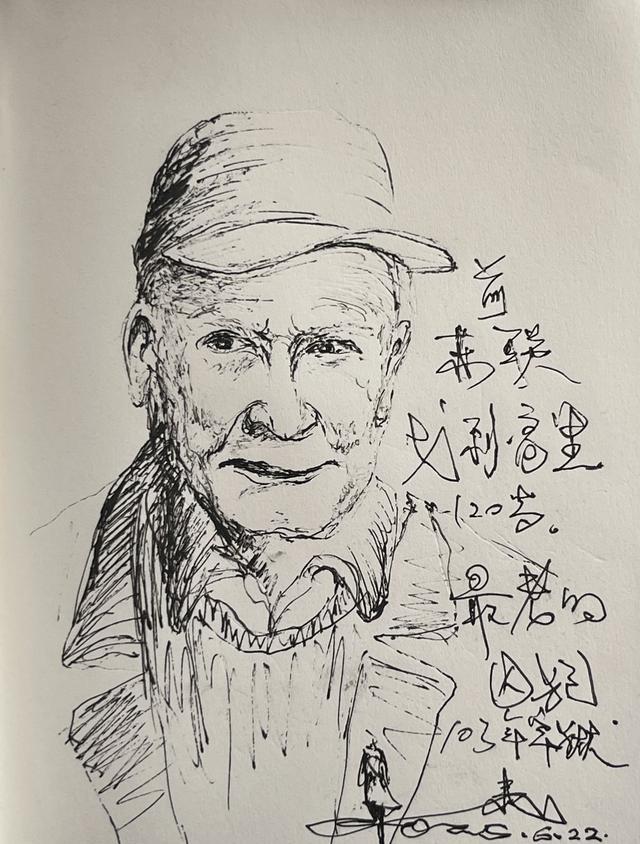 前
苏联
戈利高里
120岁。
最老的
囚犯
103年牢狱.
2025.6.22.